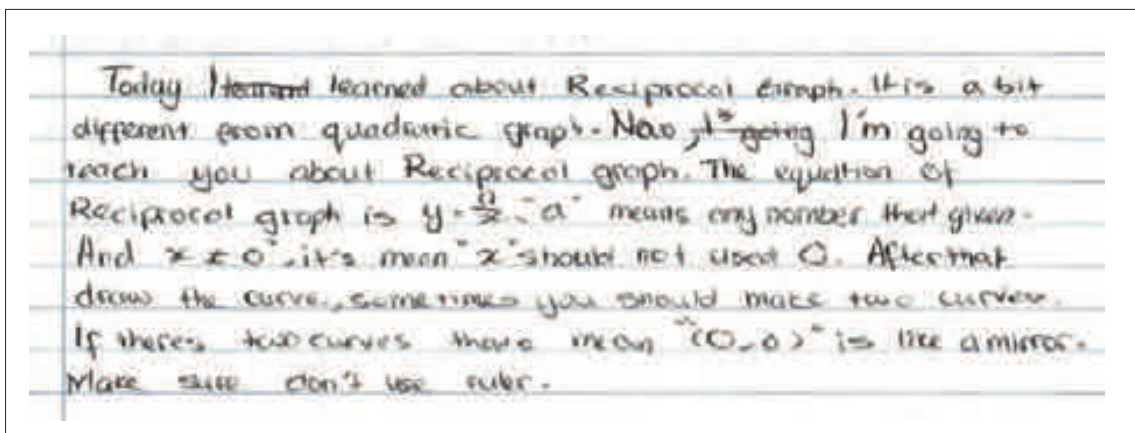 Today I learned learned about Reciprocal Graph. It is a bit
different from quadratic graph. Now, I's going I'm going to
teach you about Reciprocal graph. The equation of
Reciprocal graph is y = a/x. "a" means any number that given.
And "x ≠ 0", it's mean "x" should not used 0. After that
draw the curve, sometimes you should make two curves.
If theres two curves thats mean "(0,0)" is like a mirror.
Make sure don't use rubr.